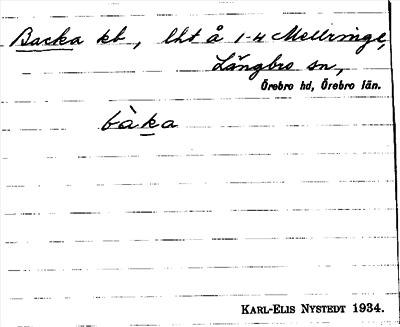 Backa kb, lht å 1-4 Mellringe,
Längbro sn,
Örebro hd, Örebro län.
bàka
KARL-ELIS NYSTEDT 1934.